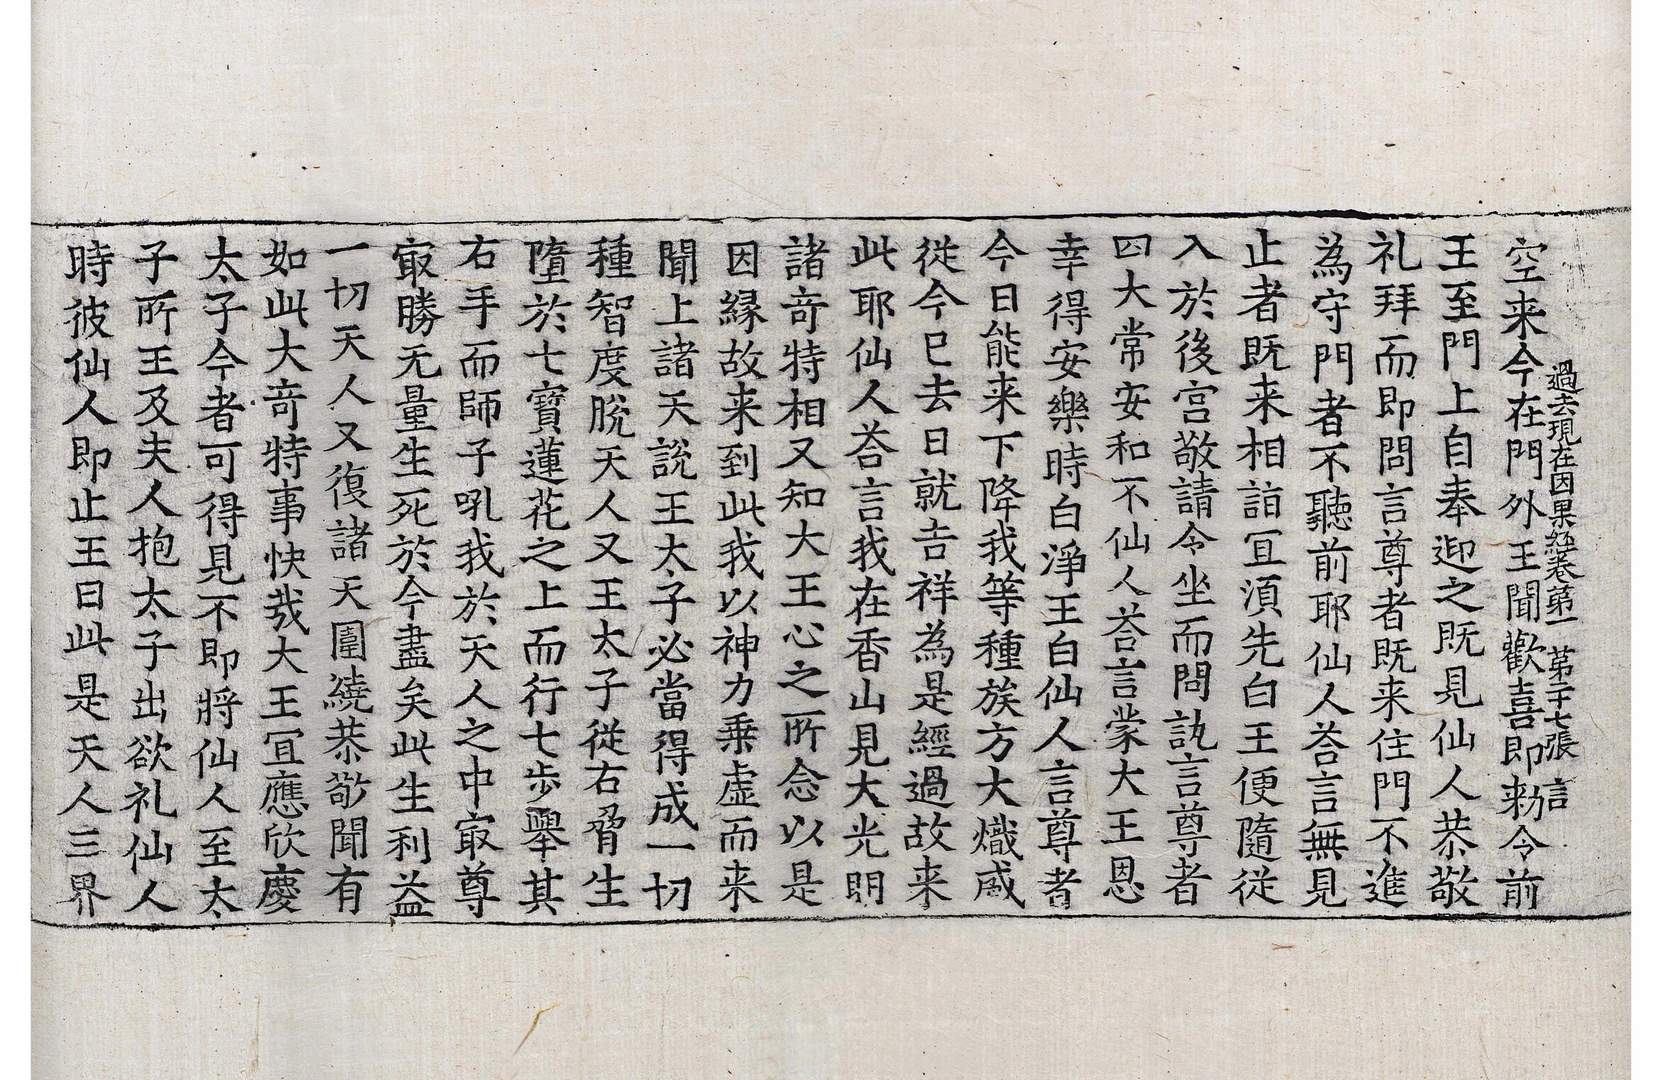 過去現在因果經卷第一 第二十七張 言
空来今在門外王聞歡喜即勑令前
王至門上自奉迎之既見仙人恭敬
礼拜而即問言尊者既来住門不進
為守門者不聽前耶仙人荅言無見
止者既来相詣冝湏先白王便隨従
入於後宫敬請令坐而問訊言尊者
四大常安和不仙人荅言蒙大王恩
幸得安樂時白淨王白仙人言尊者
今日能来下降我等種族方大熾盛
従今已去日就吉祥為是經過故来
此耶仙人荅言我在香山見大光明
諸竒特相又知大王心之所念以是
因縁故来到此我以神力乗虚而来
聞上諸天說王太子必當得成一切
種智度脫天人又王太子従右脅生
墮於七寶蓮花之上而行七步舉其
右手而師子吼我於天人之中冣尊
冣勝无量生死於今盡矣此生利益
一切天人又復諸天圍繞恭敬聞有
如此大竒特事快㢤大王冝應欣慶
太子今者可得見不即將仙人至太
子所王及夫人抱太子出欲礼仙人
時彼仙人即止王曰此是天人三界